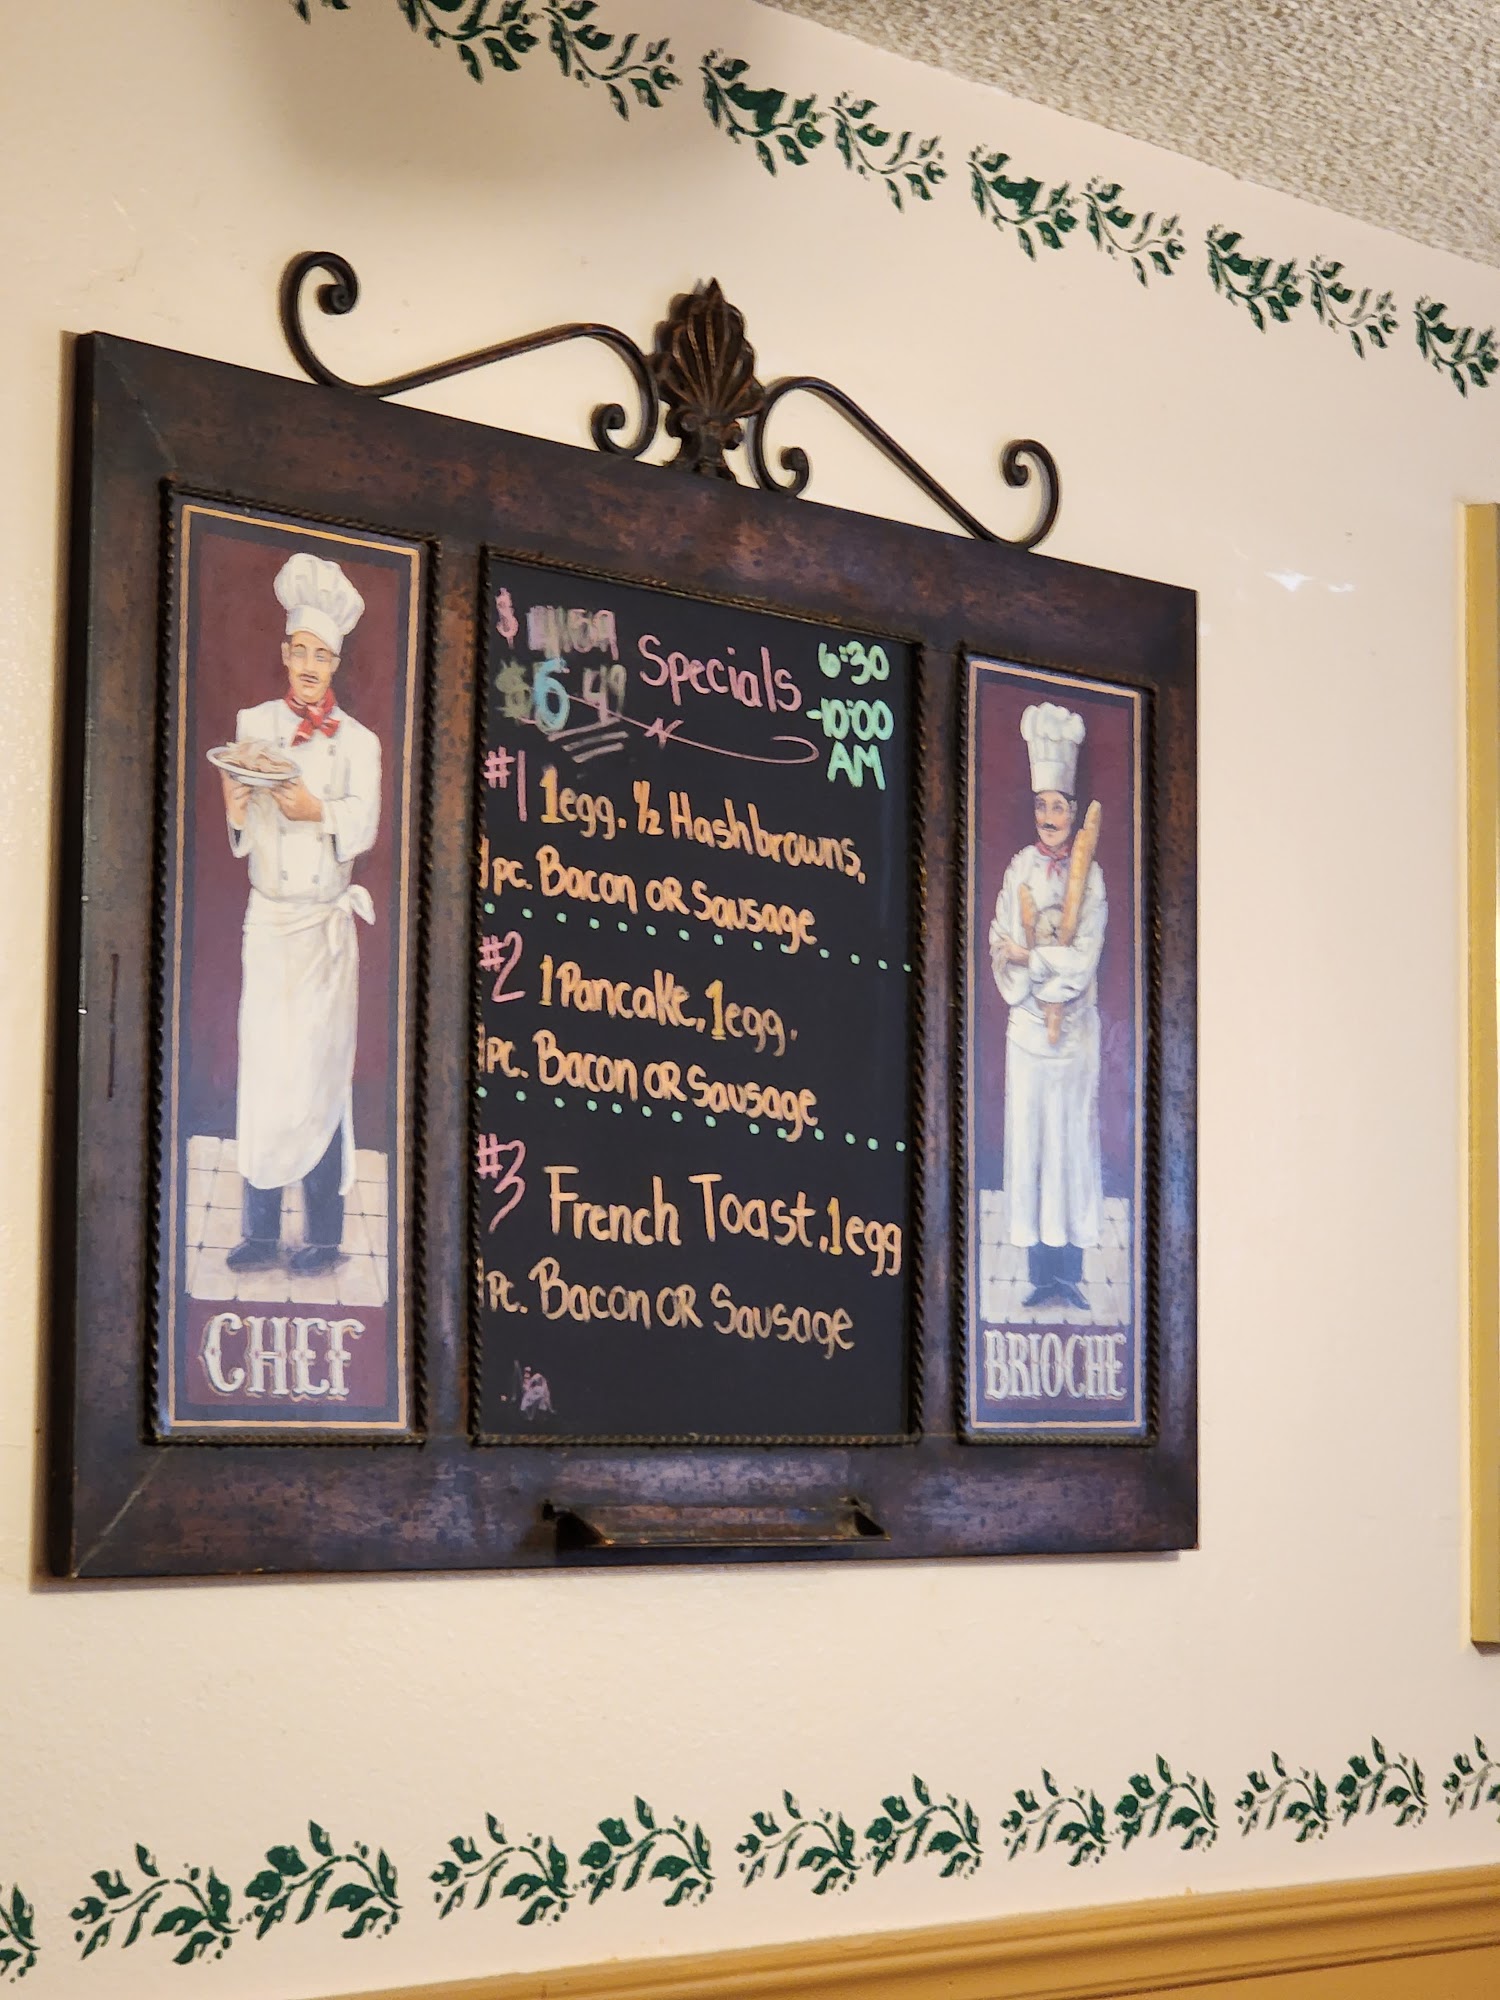 $6.49 Specials 6:30
-10:00
AM
#1 1egg. 1/2 Hashbrowns,
1pc. Bacon OR Sausage
#2 1 Pancake, 1egg,
1pc. Bacon OR Sausage
#3 French Toast, 1egg
1pc. Bacon OR Sausage
CHEF
BRIOCHE